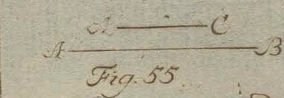 A C
A B
Fig. 55